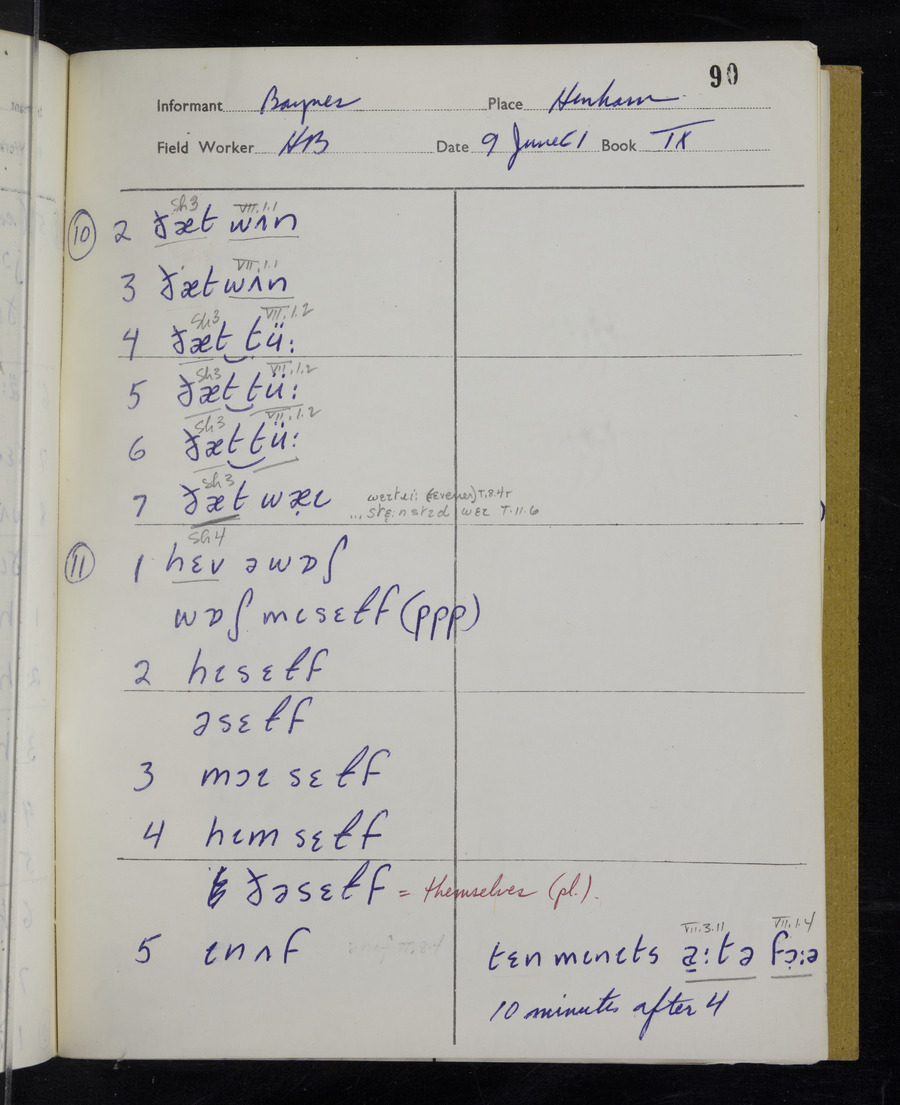 90
Informant Baynes Place Henham
Field Worker HB Date 9 June 61 Book IX
sh3 VII.1.1
⑩ 2 ðæt wʌn
VII.1.1
3 ðæt wʌn
sh3 VII.1.2
4 ðæt‿tü:
sh3 VII.1.2
5 ðæt‿tü:
sh3 VII.1.2
6 ðæt‿tü:
sh3
7 ðæt wæ̣ɩ
T.8.4r
... wɛɩ T.11.6
sh4
⑪ 1 hɛv əwɒʃ
wɒʃ mɩsɛɫf (ppp)
2 hɩsɛɫf
əsɛɫf
3 mɔɩsɛɫf
4 hɩmsɛɫf
ðəsɛɫf = themselves (pl.).
5 ɩnʌf
VII.3.11 VII.1.4
tɛn mɩnɩts a̠:tə fɔ̣:ə
10 minutes after 4